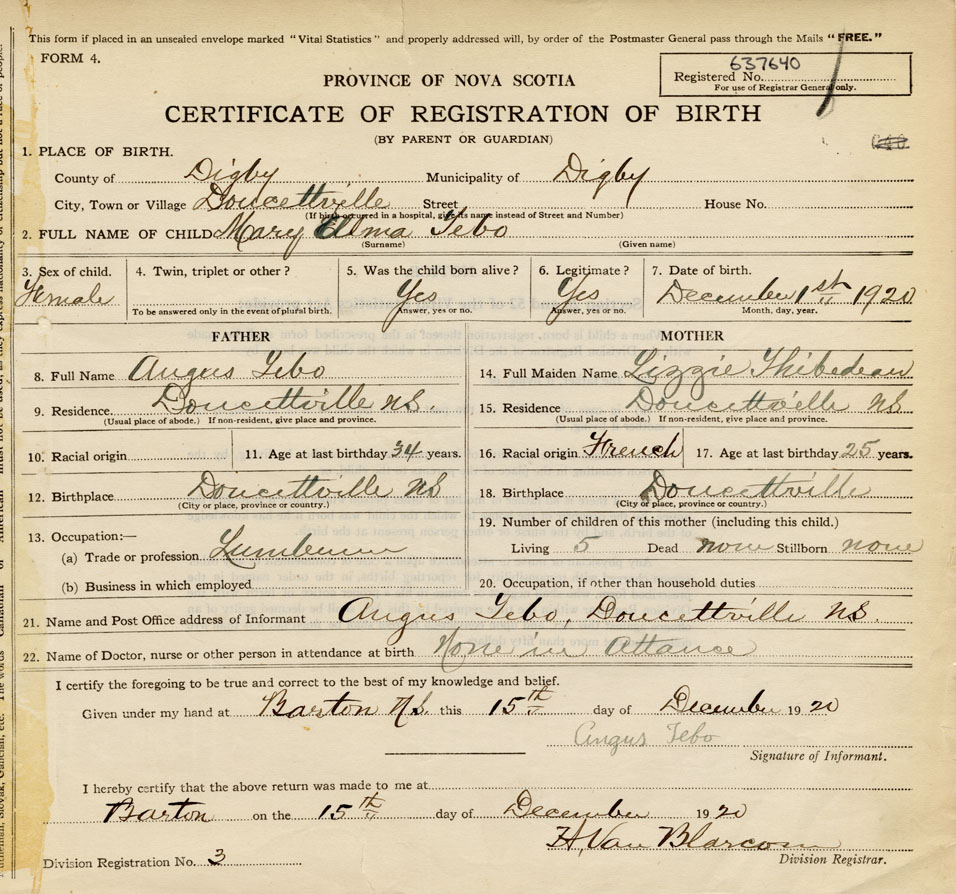 This form if placed in an unsealed envelope marked "Vital Statistics" and properly addressed will, by order of the Postmaster General pass through the Mails "FREE."
FORM 4.
637640
Registered No.
For use of Registrar General only.
PROVINCE OF NOVA SCOTIA
CERTIFICATE OF REGISTRATION OF BIRTH
(BY PARENT OR GUARDIAN)
1. PLACE OF BIRTH.
County of Digby Municipality of Digby
City, Town or Village Doucettville Street House No.
(If birth occurred in a hospital, give its name instead of Street and Number)
2. FULL NAME OF CHILD Mary Elma Tebo
(Surname) (Given name)
3. Sex of child. 4. Twin, triplet or other? 5. Was the child born alive? 6. Legitimate? 7. Date of birth.
Female Yes Yes December 1st 1920
To be answered only in the event of plural birth. Answer, yes or no. Answer, yes or no. Month, day, year.
FATHER MOTHER
8. Full Name Angus Tebo 14. Full Maiden Name Lizzie Thibedeau
9. Residence. Doucettville NS. 15. Residence Doucettville NS
(Usual place of abode.) If non-resident, give place and province. (Usual place of abode.) If non-resident, give place and province.
10. Racial origin 11. Age at last birthday 34 years. 16. Racial origin French 17. Age at last birthday 25 years.
12. Birthplace Doucettville NS 18. Birthplace Doucettville
(City or place, province or country.) (City or place, province or country.)
13. Occupation:— 19. Number of children of this mother (including this child.)
(a) Trade or profession Living 5 Dead none Stillborn none
(b) Business in which employed 20. Occupation, if other than household duties
21. Name and Post Office address of Informant Angus Tebo, Doucettville NS.
22. Name of Doctor, nurse or other person in attendance at birth None in Attance
I certify the foregoing to be true and correct to the best of my knowledge and belief.
Given under my hand at Barton N.S. this 15th day of December 1920
Angus Tebo
Signature of Informant.
I hereby certify that the above return was made to me at
Barton on the 15th day of December 1920
H. Van Blarcom
Division Registration No. 3 Division Registrar.